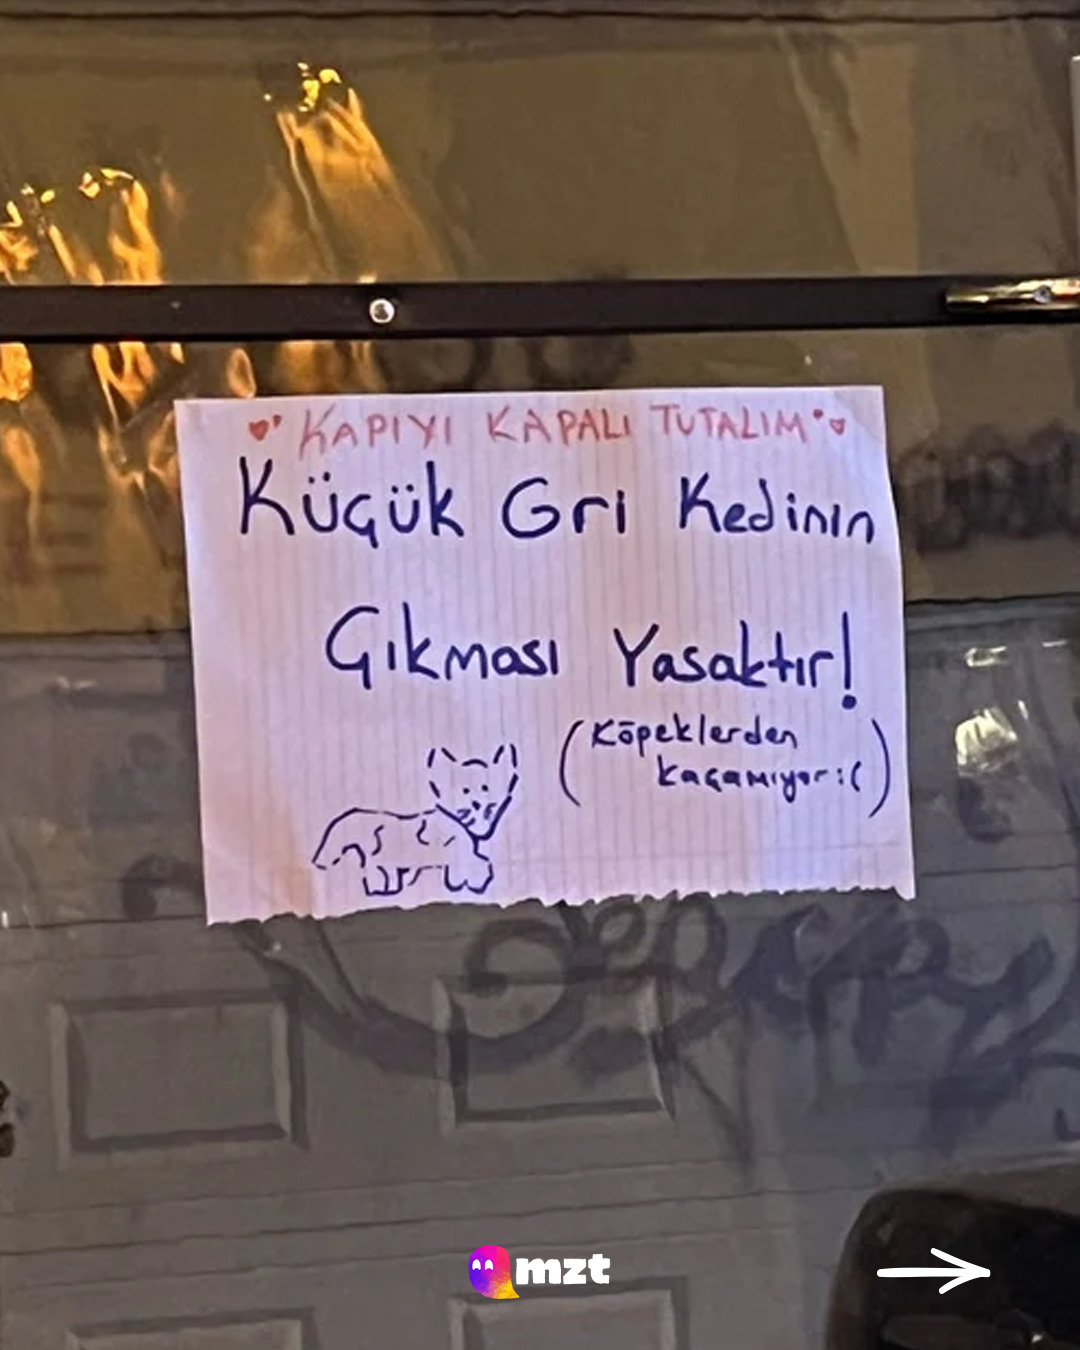 KAPIYI KAPALI TUTALIM
Küçük Gri Kedinin
Çıkması Yasaktır!
(Köpeklerden
kaçamıyor :( )
mzt